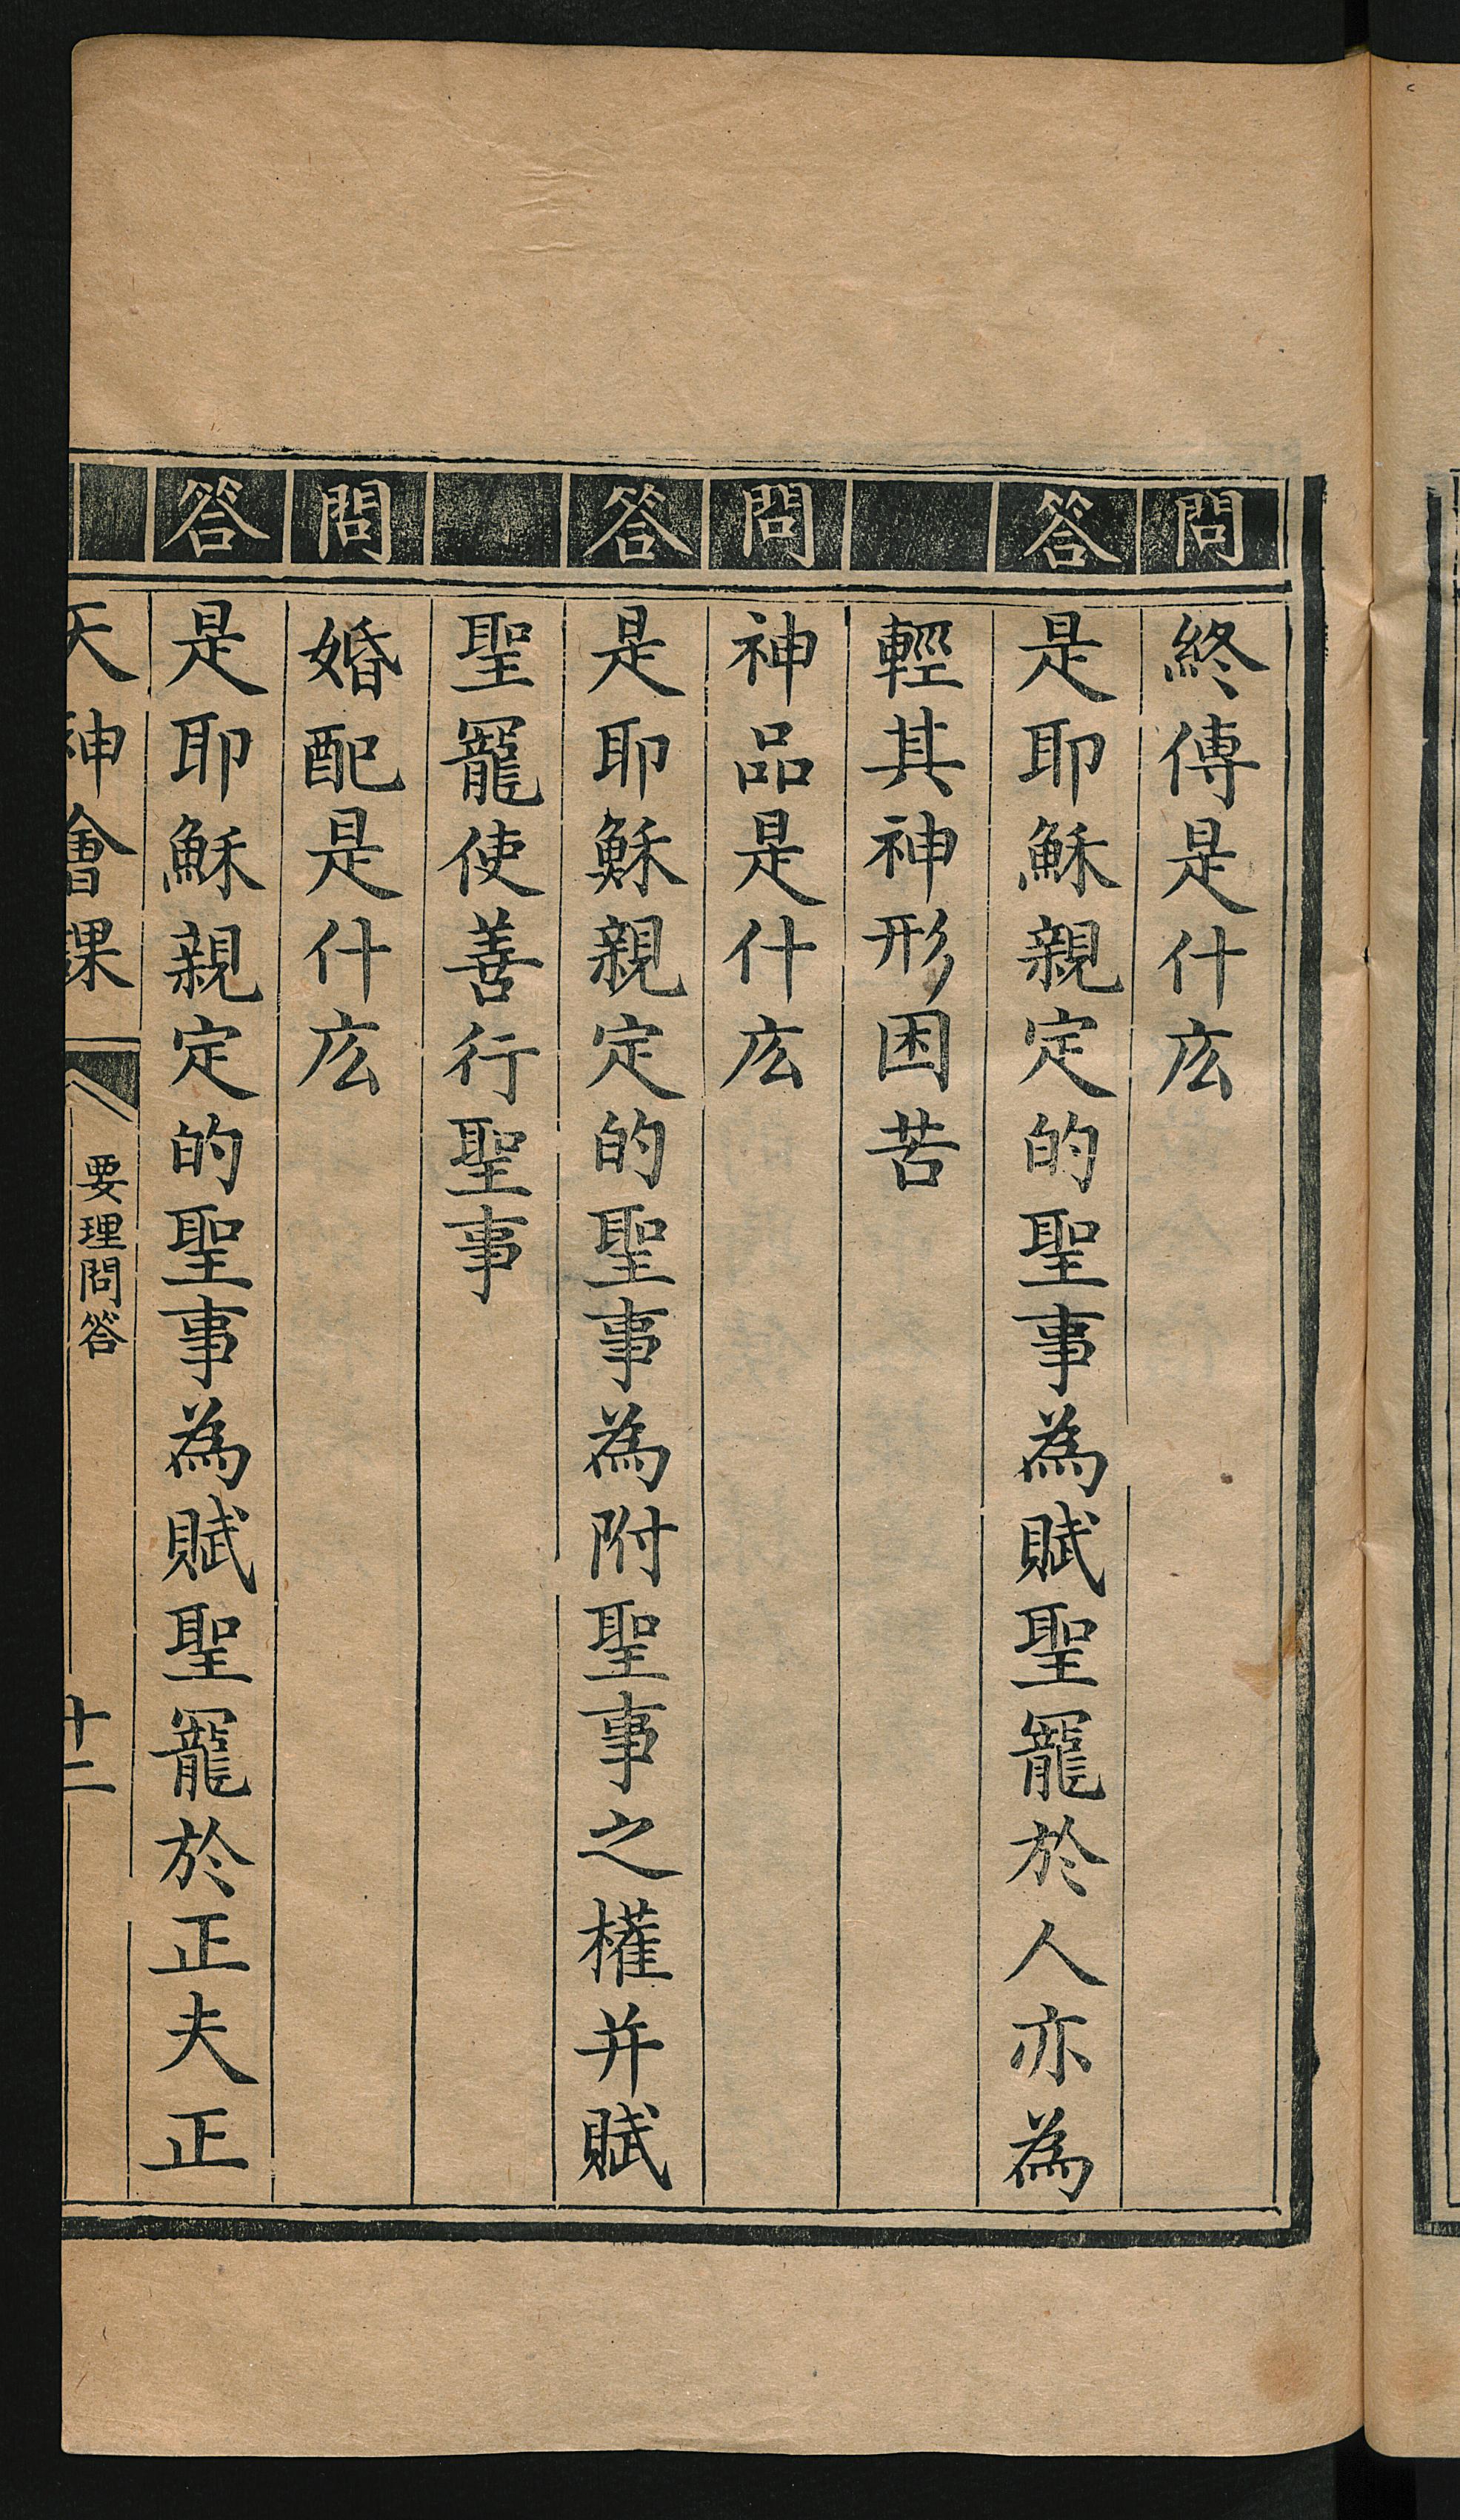 問 終傅是什庅
答 是耶穌親定的聖事為賦聖寵於人亦為
輕其神形困苦
問 神品是什庅
答 是耶穌親定的聖事為附聖事之權并賦
聖寵使善行聖事
問 婚配是什庅
答 是耶穌親定的聖事為賦聖寵於正夫正
天神會課 要理問答 十二